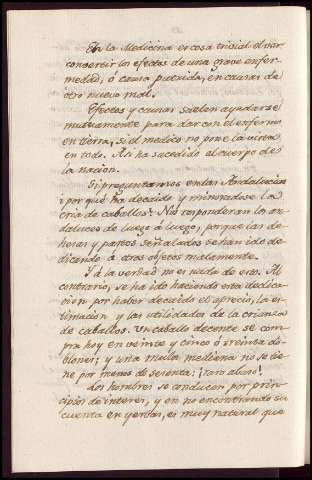 En la Medicina es cosa trivial el ver
convertir los efectos de una grave enfer-
medad, ó causa putrida, en causas de
otro nuevo mal.
Efectos y causas suelen ayudarse
mutuamente para dar con el enfermo
en tierra, si el medico no pone la mira
en todo. Asi ha sucedido al cuerpo de
la nacion.
Si preguntamos en las Andalucias
¿por qué ha decaido y minoradose la
cria de caballos? Nos responderan los an-
daluces de luego á luego, porque las de-
hesas y pastos señalados se han ido de-
dicando á otros objetos malamente.
Y á la verdad no es nada de eso. Al
contrario, se ha ido haciendo esta dedica-
cion por haber decaido el aprecio, la es-
timacion y las utilidades de la crianza
de caballos. Un caballo decente se com-
pra hoy en veinte y cinco ó treinta do-
blones; y una mula mediana no se tie-
ne por menos de sesenta: ¡raro abuso!
Los hombres se conducen por prin-
cipios de interes, y en no encontrando su
cuenta en yeguas, es muy natural que